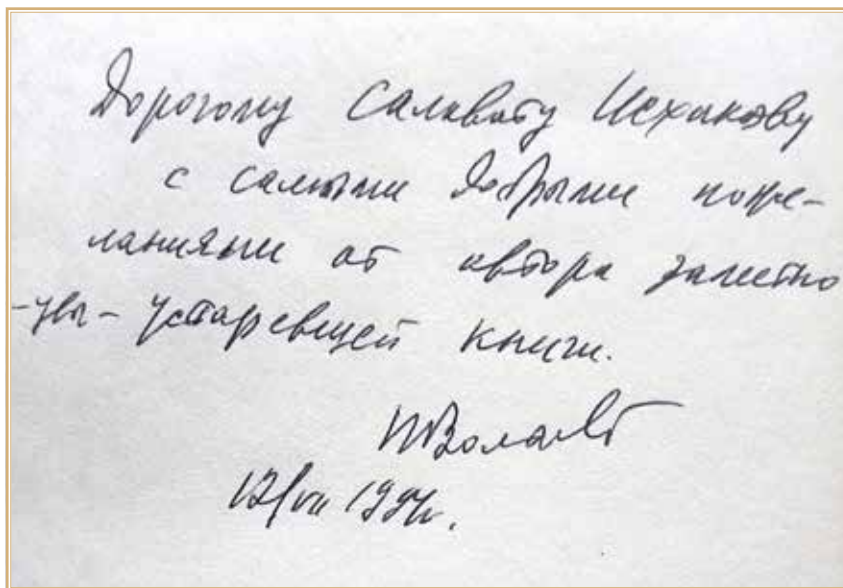 Дорогому Салавату Исхакову
с самыми добрыми поже-
ланиями от автора заметно
-увы- устаревшей книги.
ПВолобуев
12/VII 1994г.